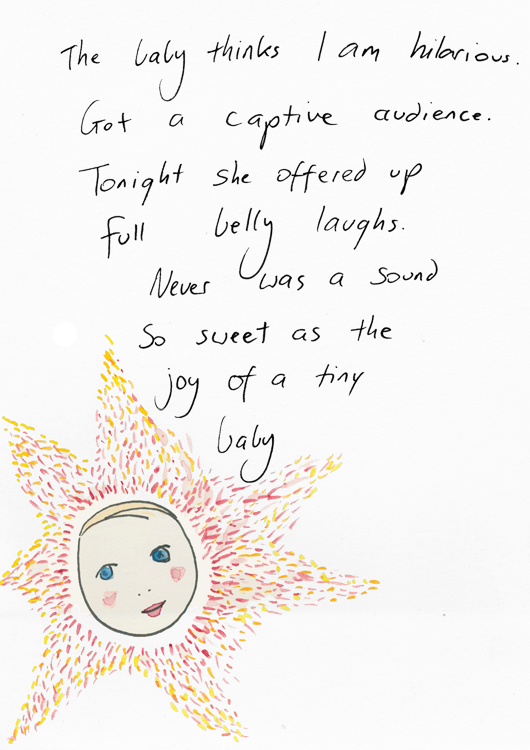 The baby thinks I am hilarious.
Got a captive audience.
Tonight she offered up
full belly laughs.
Never was a sound
So sweet as the
joy of a tiny
baby